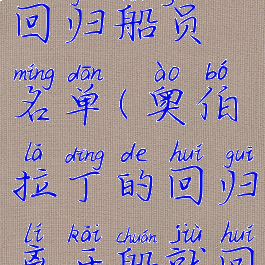 回归船员
míng dān ào bó
名单(奥伯
lā dīng de huí guī
拉丁的回归
lí kāi chuán jiù huí
离开船就回